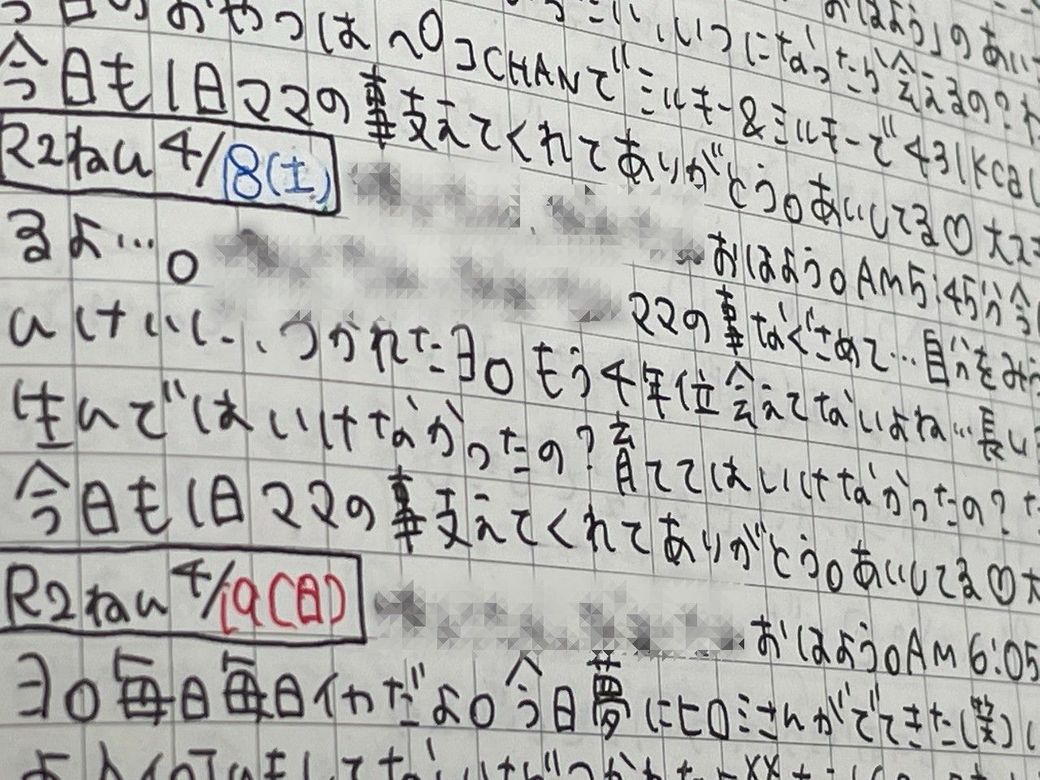 今日のおやつはペコCHANでミルキー&ミルキーで431kcal
今日も1日ママの事支えてくれてありがとう。あいしてる♡大スキ
R2ねん4/18(土)
おはよう。AM5:45分今
るよ…。 ママの事なぐさめて…自分をみう
んけいし、、つかれたヨ。もう4年位会えてないよね…長い
生んではいけなかったの?育ててはいけなかったの?
今日も1日ママの事支えてくれてありがとう。あいしてる♡大
R2ねん4/19(日) おはよう。AM6:05
ヨ。毎日毎日イヤだよ。今日夢にヒロミさんがでてきた(笑)